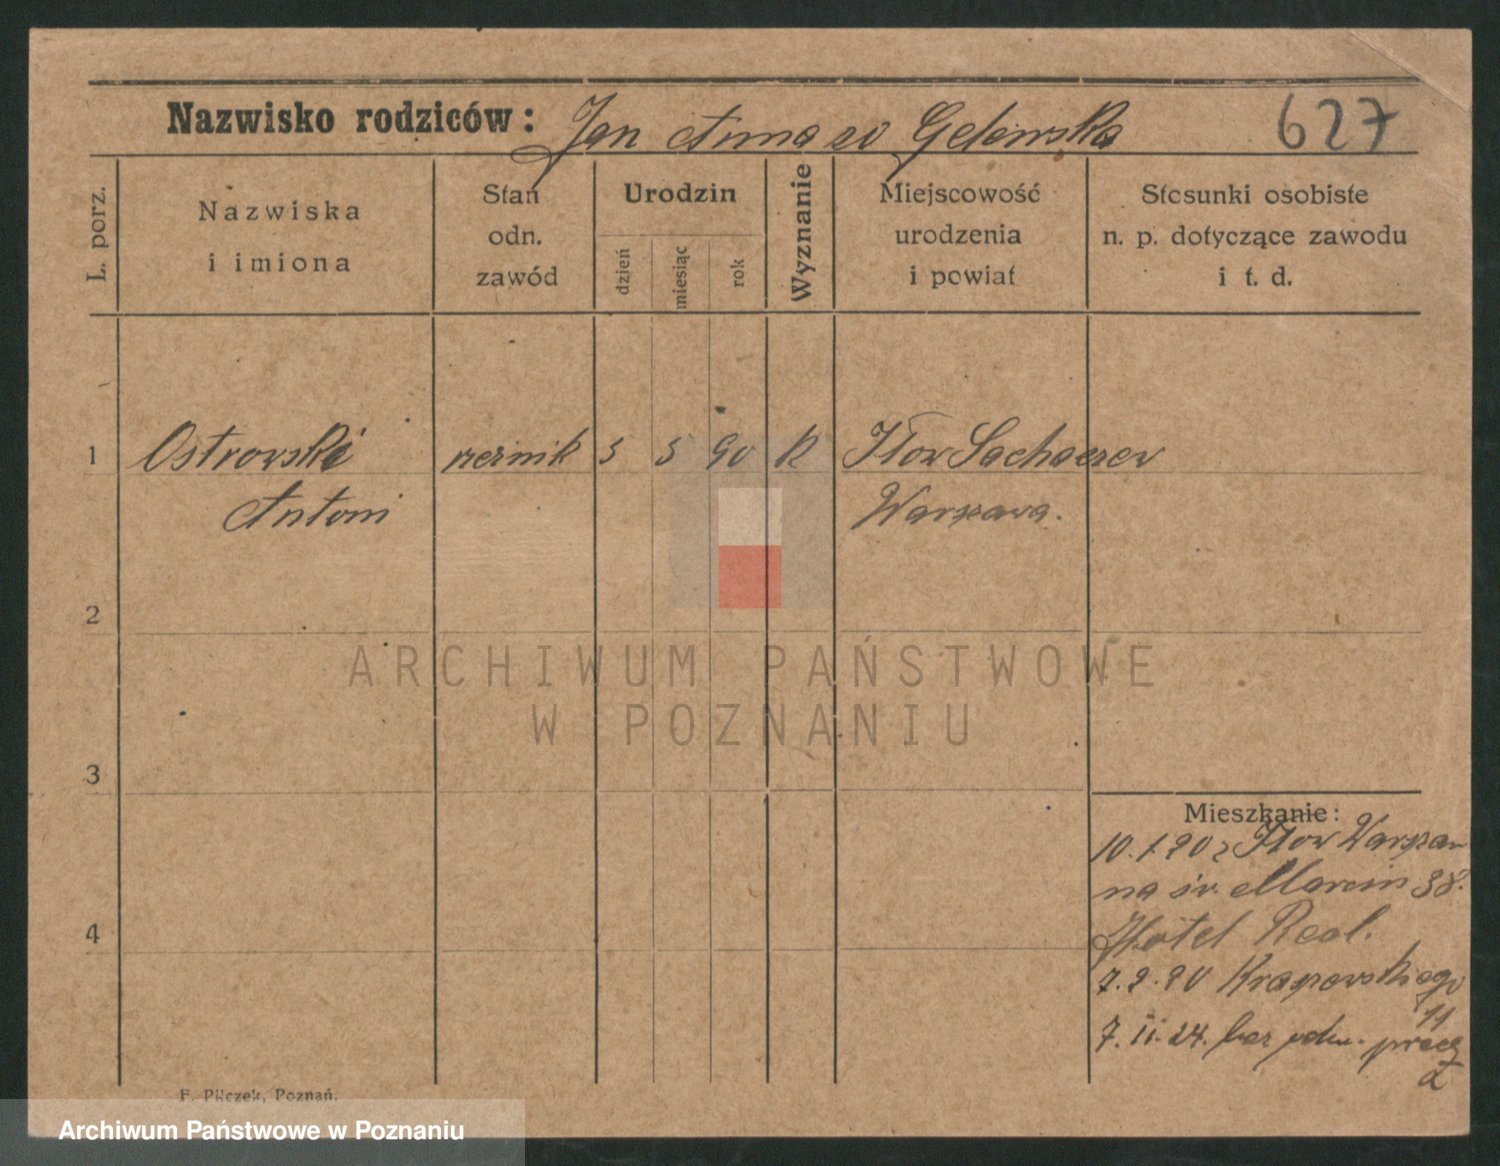 Nazwisko rodziców: Jan Anna zd Gelewska 627
L. porz.
Nazwiska
i imiona
Stan
odn.
zawód
Urodzin
dzień
miesiąc
rok
Wyznanie
Miejscowość
urodzenia
i powiat
Stosunki osobiste
n. p. dotyczące zawodu
i t. d.
1 Ostrowski rzeźnik 5 5 90 k Iłow Sochaczew
Antoni Warszawa.
2
ARCHIWUM PAŃSTWOWE
W POZNANIU
3
Mieszkanie:
10.1.20 z Iłow Warszaw
na św. Marcin 38.
4
Hotel Real.
7.2.20
11
7.II.24. bez
F. Pilczek, Poznań.
Archiwum Państwowe w Poznaniu